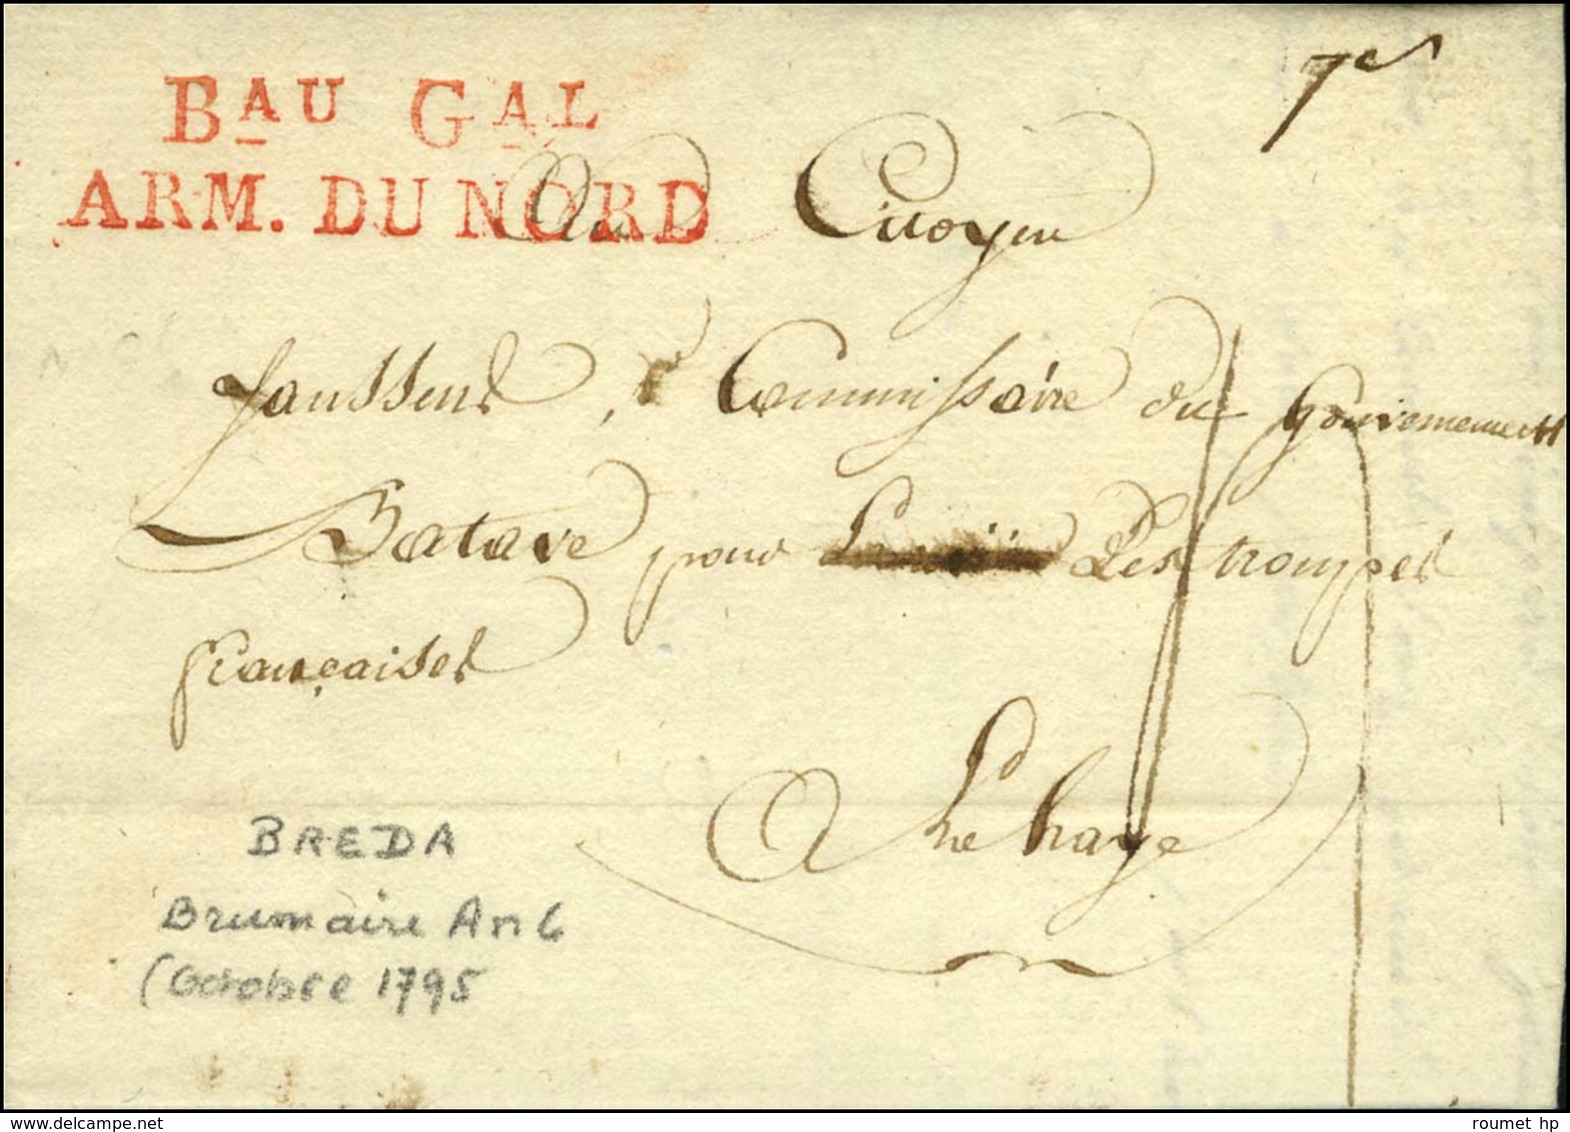 7es
BAU GAL
ARM. DU NORD
Au Citoyen
Janssens, Commissaire du Gouvernement
Batave pour Les troupes
françaises
A La haye
BREDA
Brumaire An 6
(Octobre 1795
delcampe.net
roumet hp